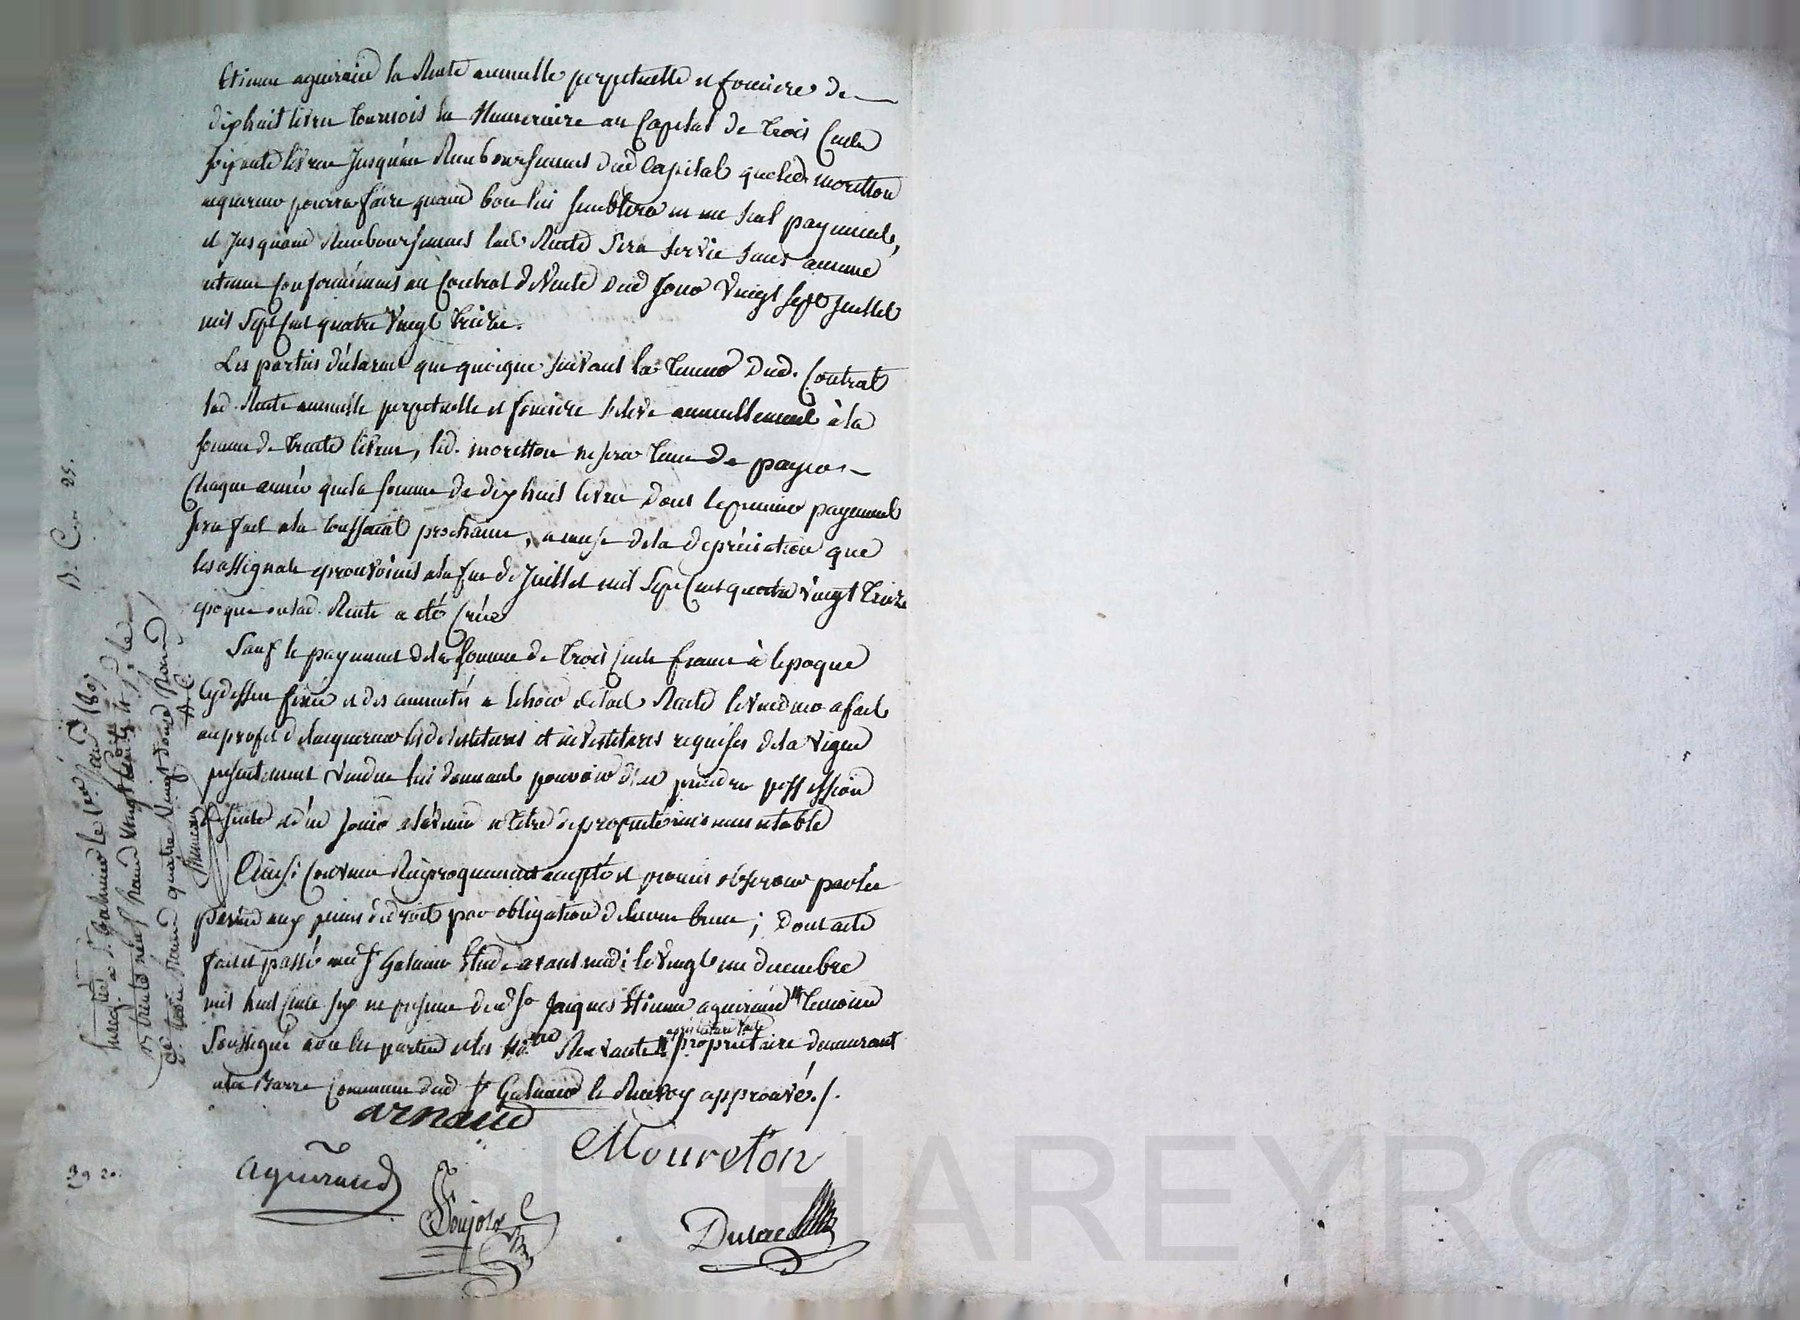 Etienne aguiraud la Rente annuelle perpetuelle et fonciere de
dixhuit livres tournois en Numeraire au Capital de trois Cents
soixante livres Jusqu'au Remboursement dud Capital que led. moretton
acquereur pourra faire quand bon lui semblera en un seul payement,
et Jusquaud Remboursement lad Rente sera servie sans aucune
retenue Conformément au Contrat de Vente dud Jour Vingt sept Juillet
mil Sept Cent quatre Vingt treize.
Les parties déclarent que quoique suivant la teneur dud. Contrat
lad. Rente annuelle perpetuelle et fonciere seleve annuellement à la
somme de trente livres, led. moretton ne sera tenu de payer
Chaque année que la somme de dixhuit livres dont le premier payement
sera fait a la toussaint prochaine, a cause de la depréciation que
les assignats eprouvoient a la fin de Juillet mil Sept Cent quatre vingt treize
epoque ou lad. Rente a été Créée
Sauf le payement de la somme de trois Cents francs à lepoque
Cydessus fixée et des annuités a echoir de lad Rente le vendeur a fait
au profit de lacquereur les devestitures et investitures requises de la vigne
presentement vendue lui donnant pouvoir d'en prendre possession
et d'en Jouir a lavenir a titre de proprieté incommutable
Ainsi Convenu Reciproquement accepté et promis observer par les
parties aux peines de droit par obligation de leurs biens ; Dont acte
fait et passé aud St Galmier Etude avant midi le vingt un decembre
mil huit Cents six en presence dud Sr Jacques Etienne aguiraud temoins
Soussignés avec les parties et les No.res Recevants propriétaire demeurant
a la Barre Commune dud St Galmier le Renvoy approuvé./.
arnaud
Moureton
aguiraud
Poujol
Dulac
B. C. 25.
Enreg. à St. Galmier le
39 20.